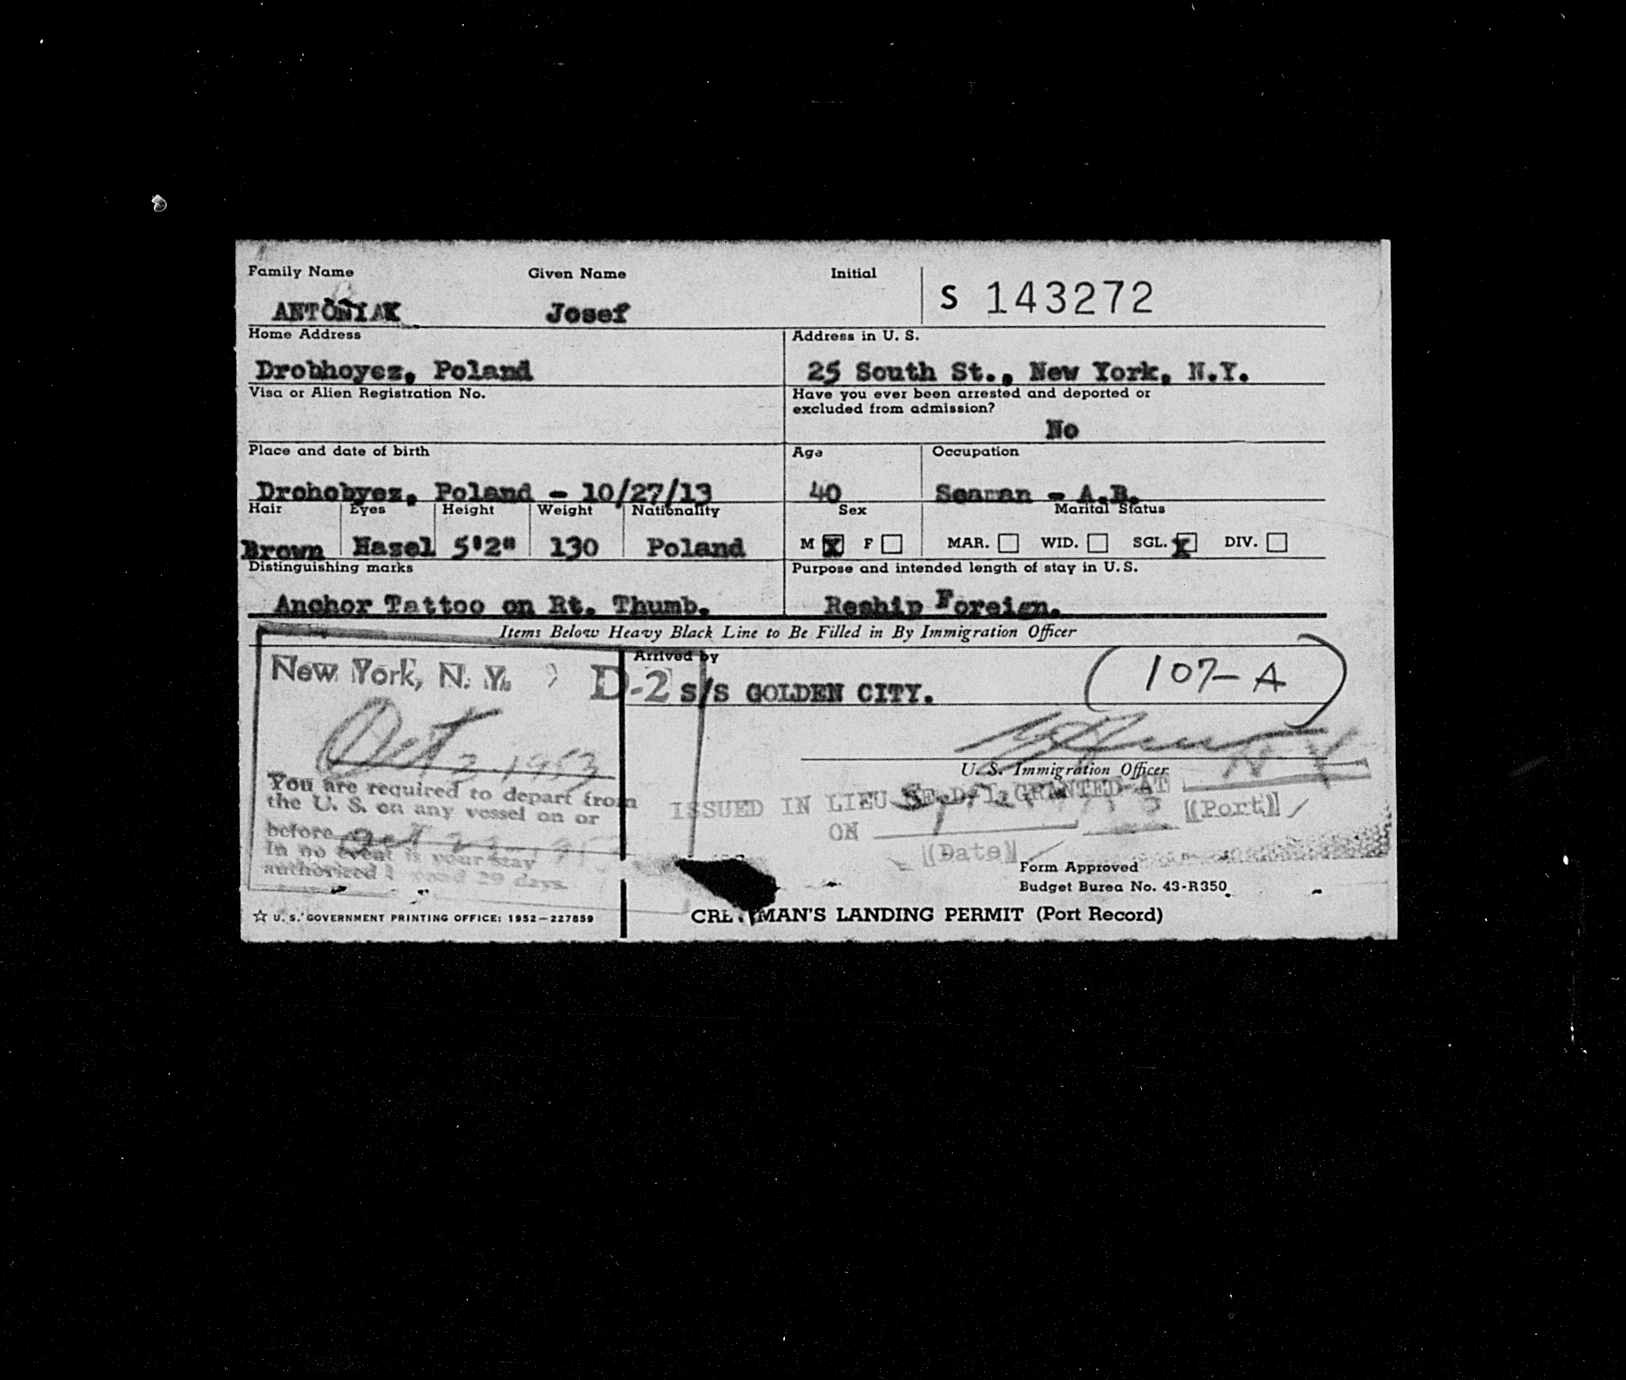 Family Name Given Name Initial
ANTONIAK Josef S 143272
Home Address Address in U. S.
Drobhoyez, Poland 25 South St., New York, N.Y.
Visa or Alien Registration No. Have you ever been arrested and deported or
excluded from admission?
No
Place and date of birth Age Occupation
Drohobyez, Poland - 10/27/13 40 Seaman - A.B.
Hair Eyes Height Weight Nationality Sex Marital Status
Brown Hazel 5'2" 130 Poland M X F MAR. WID. SGL. X DIV.
Distinguishing marks Purpose and intended length of stay in U.S.
Anchor Tattoo on Rt. Thumb. Reship Foreign.
Items Below Heavy Black Line to Be Filled in By Immigration Officer
Arrived by
New York, N. Y. D-2 S/S GOLDEN CITY. (107-A)
Oct 2 1953
U. S. Immigration Officer
N.Y
You are required to depart from
the U. S. on any vessel on or
before Oct
In no event is your stay
authorized 29 days.
ISSUED IN LIEU OF D/L GRANTED AT
ON (Date) (Port)
Form Approved
Budget Burea No. 43-R350
☆ U. S. GOVERNMENT PRINTING OFFICE: 1952—227859
MAN'S LANDING PERMIT (Port Record)